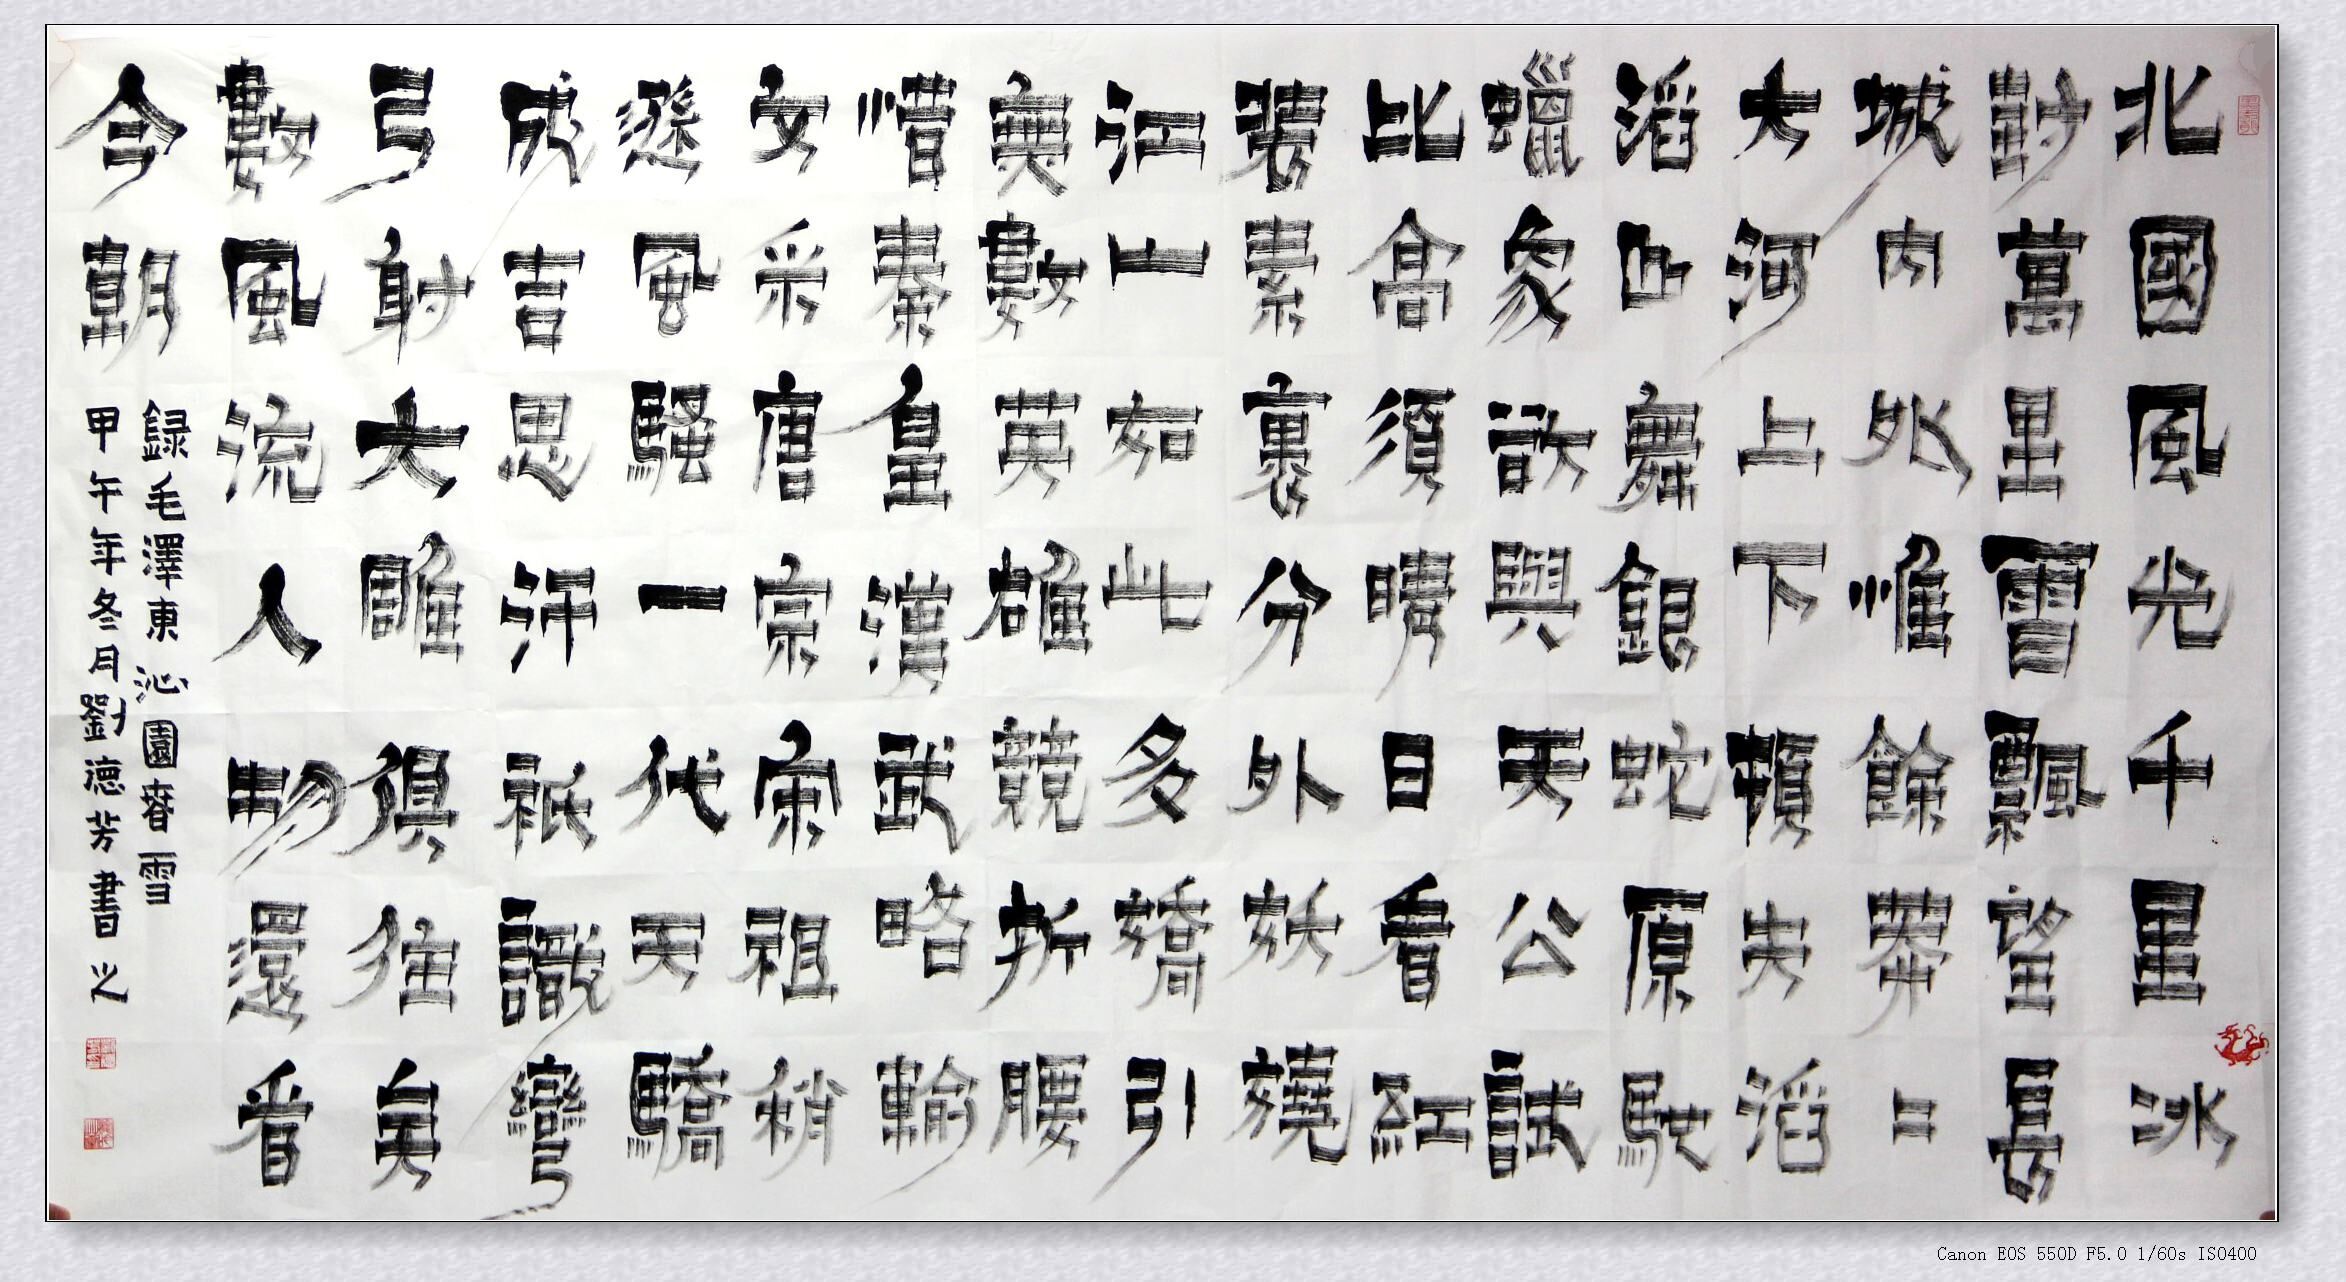 北國風光千里冰
封萬里雪飄望長
城內外惟餘莽〻
大河上下頓失滔
滔山舞銀蛇原馳
蠟象欲與天公試
比高須晴日看紅
裝素裹分外妖嬈
江山如此多嬌引
無數英雄競折腰
惜秦皇漢武略輸
文采唐宗宋祖稍
遜風騷一代天驕
成吉思汗祇識彎
弓射大雕俱往矣
數風流人物還看
今朝
録毛澤東沁園春雪
甲午年冬月劉德芳書之
Canon EOS 550D F5.0 1/60s ISO400